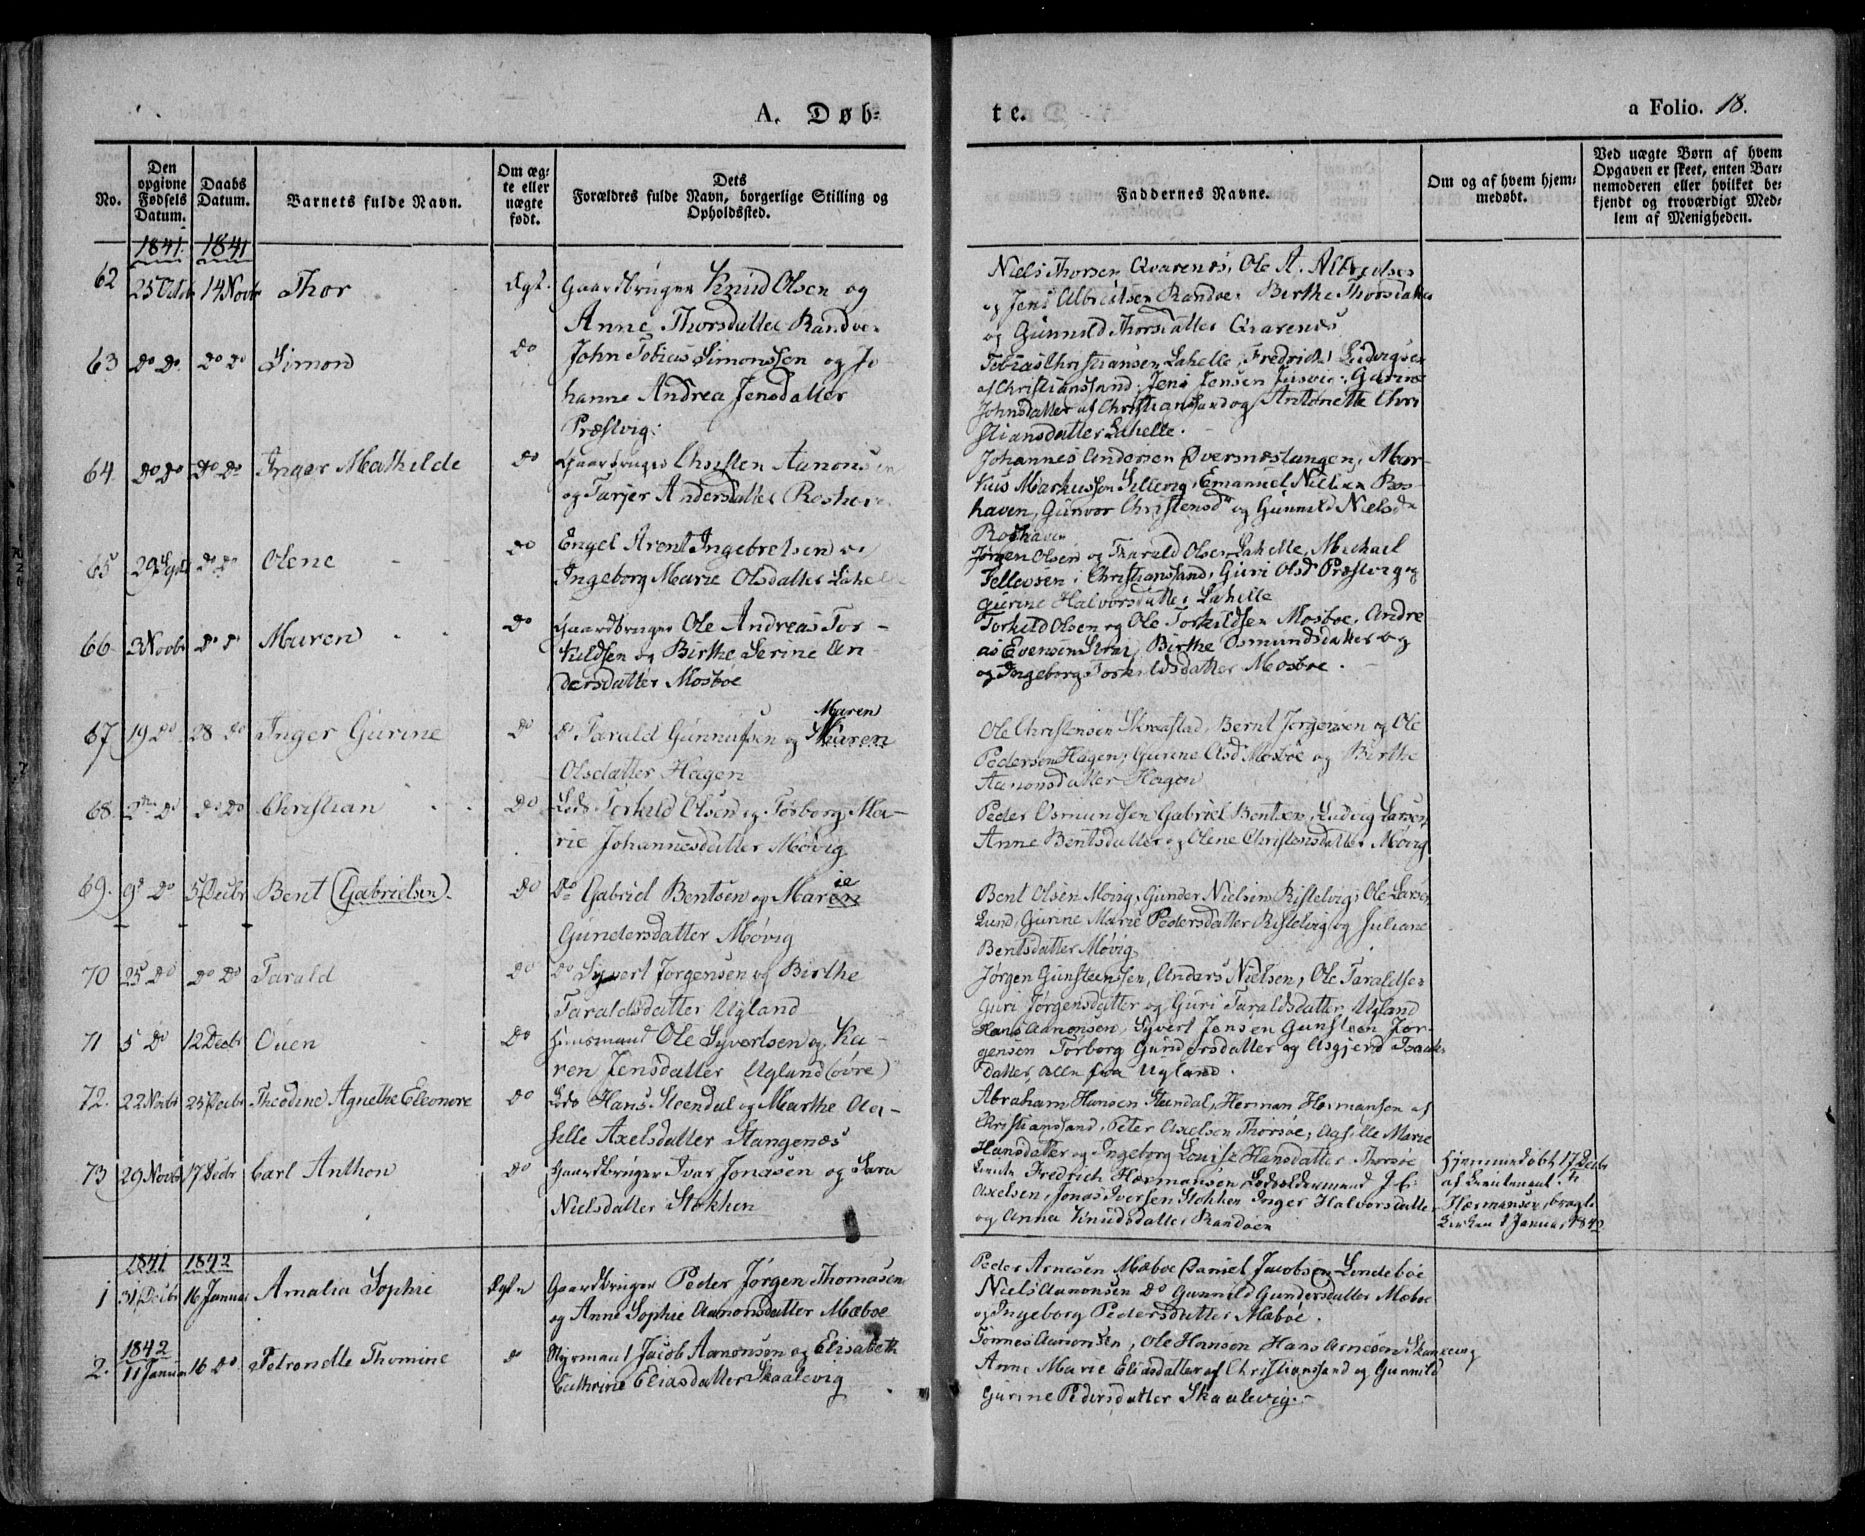 A. Døb-
te.
a Folio. 18.
No.
Den opgivne Fødsels Datum.
Daabs Datum.
Barnets fulde Navn.
Om ægte eller uægte født.
Dets Forældres fulde Navn, borgerlige Stilling og Opholdssted.
Faddernes Navne.
Om og af hvem hjemmedøbt.
Ved uægte Børn af hvem Opgaven er skeet, enten Barnemoderen eller hvilket bekjendt og troværdigt Medlem af Menigheden.
1841 1841
62 25 Octb 14 Novbr Thor Ægt. Gaardbruger Knud Olsen og
Anne Thorsdatter Randøe
Niels Thorsen Qvarenes, Ole A. Albretsen
og Jens Albretsen Randøe. Birthe Thorsdatter
og Gunnild Thorsdatter Qvarenes
63 do do do do Simon do John Tobias Simonssen og Jo-
hanne Andrea Jensdatter
Præstvig.
Tobias Christiansen Lahelle, Fredrich Ludvigsen
af Christianssand, Jens Jensen, Gurine
Johnsdatter af Christianssand og Antonette Chri
stiansdatter Lahelle.
64 do do do do Inger Mathilde do Gaardbruger Christen Aanonsen
og Tarjer Andersdatter Roshav
Johannes Andersen Qversnestangen, Mar-
kus Markussen Sellevig, Emanuel Nielsen Ros-
haven, Gunvor Christensd. og Gunnild Nielsd.
Roshaven
65 29 Sept do do Olene do Engel Arent Ingebretsen og
Ingeborg Marie Olsdatter Lahelle
Jørgen Olsen og Tharald Olsen Lahelle, Michael
Tellevsen i Christianssand, Guri Olsd. Præstvig og
Gurine Halvorsdatter Lahelle
66 3 Novbr do do Maren do Gaardbruger Ole Andreas Tor-
kildsen og Birthe Serine An-
dersdatter Mosbøe
Torkild Olsen og Ole Torkildsen Mosbøe, Andre
as Evensen Strai, Birthe Osmundsdatter og
og Ingeborg Torkildsdatter Mosbøe.
67 19 do 28 do Inger Gurine do do Tarald Gunnufsen og Maren
Maren
Olsdatter Hagen
Ole Christensen Skraastad, Bernt Jørgensen og Ole
Pedersen Hagen, Gurine Olsd. Mosbøe og Birthe
Aanonsdatter Hagen
68 2den do do do Christian do Lods Torkild Olsen og Torborg Ma-
rie Johannesdatter Møvig
Peder Osmundsen Gabriel Bentsen, Ludvig Larsen
Anne Bentsdatter og Olene Christensdatter Møvig
69. 9d do 5 Decbr Bent (Gabrielsen). do do Gabriel Bentsen og Maren
ie
Gundersdatter Møvig
Bent Olsen Møvig, Gunder Nielsen Ristelvig, Ole Larsen
Lund, Gurine Marie Pedersdatter Ristelvig og Juliane
Bentsdatter Møvig
70 25 do do do Tarald do do Syvert Jørgensen og Birthe
Taraldsdatter Ugland
Jørgen Gunsteinsen, Anders Nielsen, Ole Taraldsen
Guri Jørgensdatter og Guri Taraldsdatter Ugland
71 5 do 12 Decbr Ouen do Huusmand Ole Syvertsen og Ka-
ren Jensdatter Ugland (øvre)
Hans Aanonsen, Syvert Jensen Gunsteen Jør-
gensen Torborg Gundersdatter og Asgjerd Isaaks-
datter, alle fra Ugland.
72. 22 Novbr 25 Decbr Theodine Agnethe Eleonore do Lods Hans Steendal og Marthe Aa-
selle Axelsdatter Stangenæs
Abraham Hansen Steindal, Herman Hermansen af
Christianssand, Peter Axelsen Thorsøe, Aaselle Marie
Hansdatter og Ingeborg Louise Hansdatter Thorsøe
73 29 Novbr 17 Decbr Carl Anthon do Gaardbruger Ivar Jonasen og Sara
Nielsdatter Stokken
Fredrich Hermansen, Lodsoldermand J. C.
Axelsen, Jonas Iversen Stokken Inger Halvorsdatter
og Anna Knudsdatter Randøen
Hjemmedøbt 17 Decbr
af Lieutenant F.
Hermansen, bragt i
Kirken 1 Januar 1842
1841 1842
1 31 Decbr 16 Januar Amalia Sophie Ægte Gaardbruger Peder Jørgen Thomasen
og Anne Sophie Aanonsdatter Mæbøe
Peder Arnesen Mæbøe Daniel Jacobsen Lindebøe
Niels Aanonsen do Gunnild Gundersdatter Mæbøe
og Ingeborg Pedersdatter Mæbøe.
1842
2. 11 Januar 16 do Petronelle Thomine do Styrmand Jacob Aanonsen og Elisabeth
Cathrine Eliasdatter Skaalevig
Tønnes Aanonsen, Ole Hansen Hans Arnesen Skaalevig
Anne Marie Eliasdatter af Christianssand og Gunnild
Gurine Pedersdatter Skaalevig.